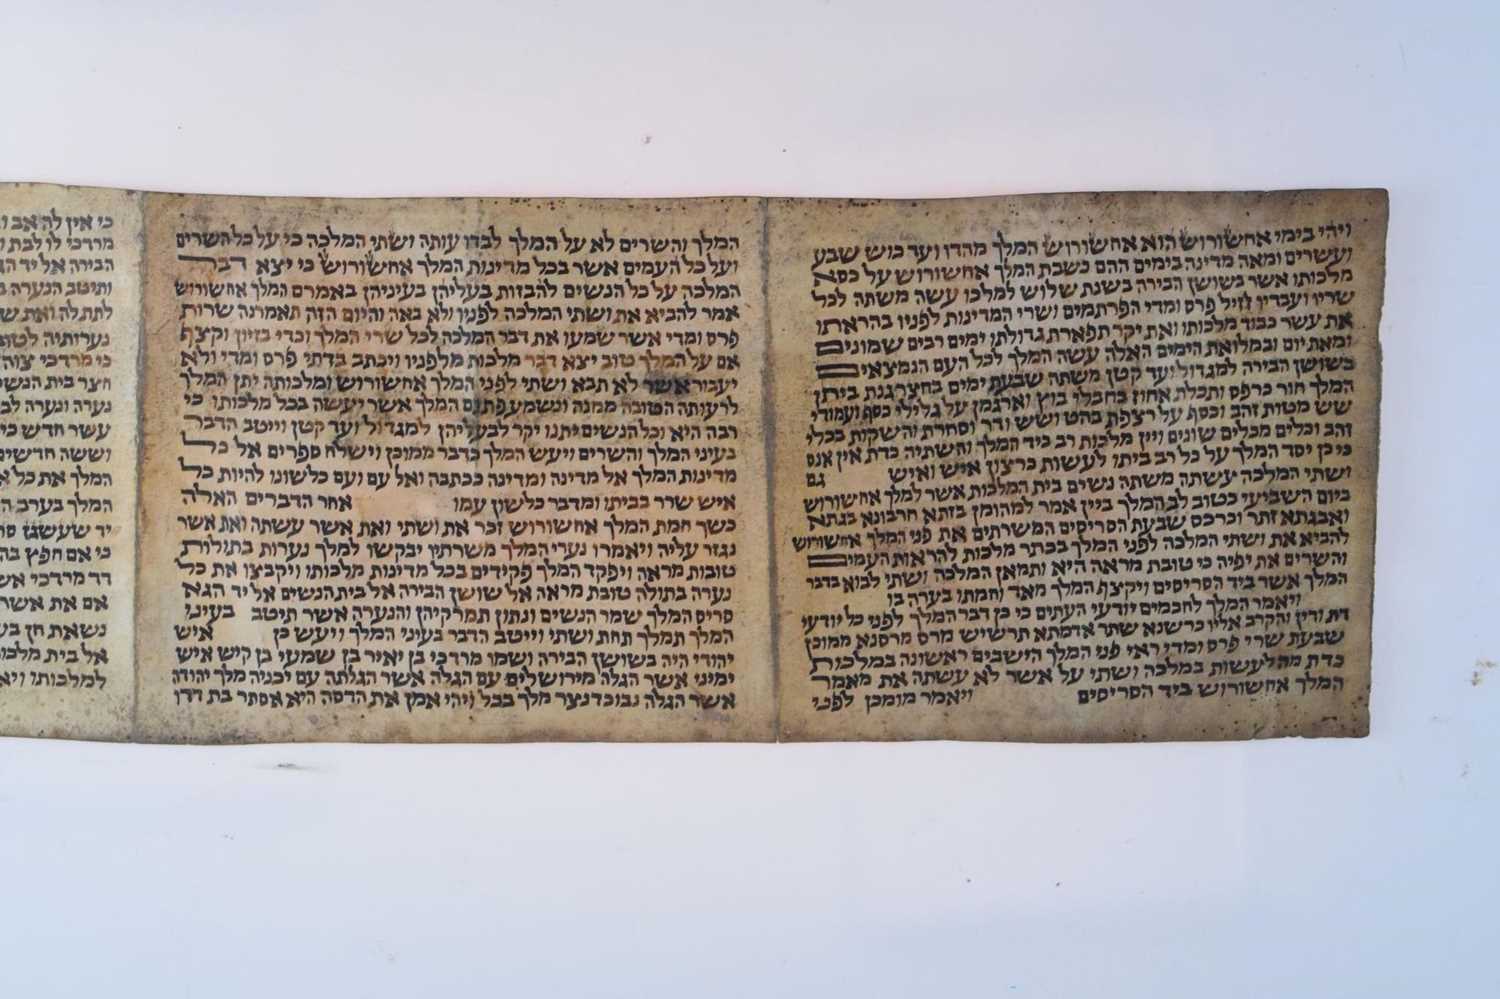 ויהי בימי אחשורוש הוא אחשורוש המלך מהדו ועד כוש שבע
ועשרים ומאה מדינה בימים ההם כשבת המלך אחשורוש על כסא
מלכותו אשר בשושן הבירה בשנת שלוש למלכו עשה משתה לכל
שריו ועבדיו חיל פרס ומדי הפרתמים ושרי המדינות לפניו בהראתו
את עשר כבוד מלכותו ואת יקר תפארת גדולתו ימים רבים שמונים
ומאת יום ובמלואת הימים האלה עשה המלך לכל העם הנמצאים
בשושן הבירה למגדול ועד קטן משתה שבעת ימים בחצר גנת ביתן
המלך חור כרפס ותכלת אחוז בחבלי בוץ וארגמן על גלילי כסף ועמודי
שש מטות זהב וכסף על רצפת בהט ושש ודר וסחרת והשקות בכלי
זהב וכלים מכלים שונים ויין מלכות רב כיד המלך והשתיה כדת אין אנס
כי כן יסד המלך על כל רב ביתו לעשות כרצון איש ואיש גם
ושתי המלכה עשתה משתה נשים בית המלכות אשר למלך אחשורוש
ביום השביעי כטוב לב המלך ביין אמר למהומן בזתא חרבונא בגתא
ואבגתא זתר וכרכס שבעת הסריסים המשרתים את פני המלך אחשורוש
להביא את ושתי המלכה לפני המלך בכתר מלכות להראות העמים
והשרים את יפיה כי טובת מראה היא ותמאן המלכה ושתי לבוא בדבר
המלך אשר ביד הסריסים ויקצף המלך מאד וחמתו בערה בו
ויאמר המלך לחכמים יודעי העתים כי כן דבר המלך לפני כל יודעי
דת ודין והקרב אליו כרשנא שתר אדמתא תרשיש מרס מרסנא ממוכן
שבעת שרי פרס ומדי ראי פני המלך הישבים ראשונה במלכות
כדת מה לעשות במלכה ושתי על אשר לא עשתה את מאמר
המלך אחשורוש ביד הסריסים ויאמר מומכן לפני
המלך והשרים לא על המלך לבדו עותה ושתי המלכה כי על כל השרים
ועל כל העמים אשר בכל מדינות המלך אחשורוש כי יצא דבר
המלכה על כל הנשים להבזות בעליהן בעיניהן באמרם המלך אחשורוש
אמר להביא את ושתי המלכה לפניו ולא באה והיום הזה תאמרנה שרות
פרס ומדי אשר שמעו את דבר המלכה לכל שרי המלך וכדי בזיון וקצף
אם על המלך טוב יצא דבר מלכות מלפניו ויכתב בדתי פרס ומדי ולא
יעבור אשר לא תבא ושתי לפני המלך אחשורוש ומלכותה יתן המלך
לרעותה הטובה ממנה ונשמע פתגם המלך אשר יעשה בכל מלכותו כי
רבה היא וכל הנשים יתנו יקר לבעליהן למגדול ועד קטן וייטב הדבר
בעיני המלך והשרים ויעש המלך כדבר ממוכן וישלח ספרים אל כל
מדינות המלך אל מדינה ומדינה ככתבה ואל עם ועם כלשונו להיות כל
איש שרר בביתו ומדבר כלשון עמו אחר הדברים האלה
כשך חמת המלך אחשורוש זכר את ושתי ואת אשר עשתה ואת אשר
נגזר עליה ויאמרו נערי המלך משרתיו יבקשו למלך נערות בתולות
טובות מראה ויפקד המלך פקידים בכל מדינות מלכותו ויקבצו את כל
נערה בתולה טובת מראה אל שושן הבירה אל בית הנשים אל יד הגא
סריס המלך שמר הנשים ונתון תמרקיהן והנערה אשר תיטב בעיני
המלך תמלך תחת ושתי וייטב הדבר בעיני המלך ויעש כן איש
יהודי היה בשושן הבירה ושמו מרדכי בן יאיר בן שמעי בן קיש איש
ימיני אשר הגלה מירושלים עם הגלה אשר הגלתה עם יכניה מלך יהודה
אשר הגלה נבוכדנצר מלך בבל ויהי אמן את הדסה היא אסתר בת דדו
כי אין לה אב
מרדכי לו לבת
הבירה אל יד
ותיטב הנערה
לתת לה ואת
נערותיה
כי מרדכי צוה
חצר בית
נערה ונערה
עשר חדש כי
וששה חדשים
המלך את כל
המלך בערב
יד שעשגז
כי אם חפץ
דד מרדכי
אם את אשר
נשאת חן
אל בית
למלכותו